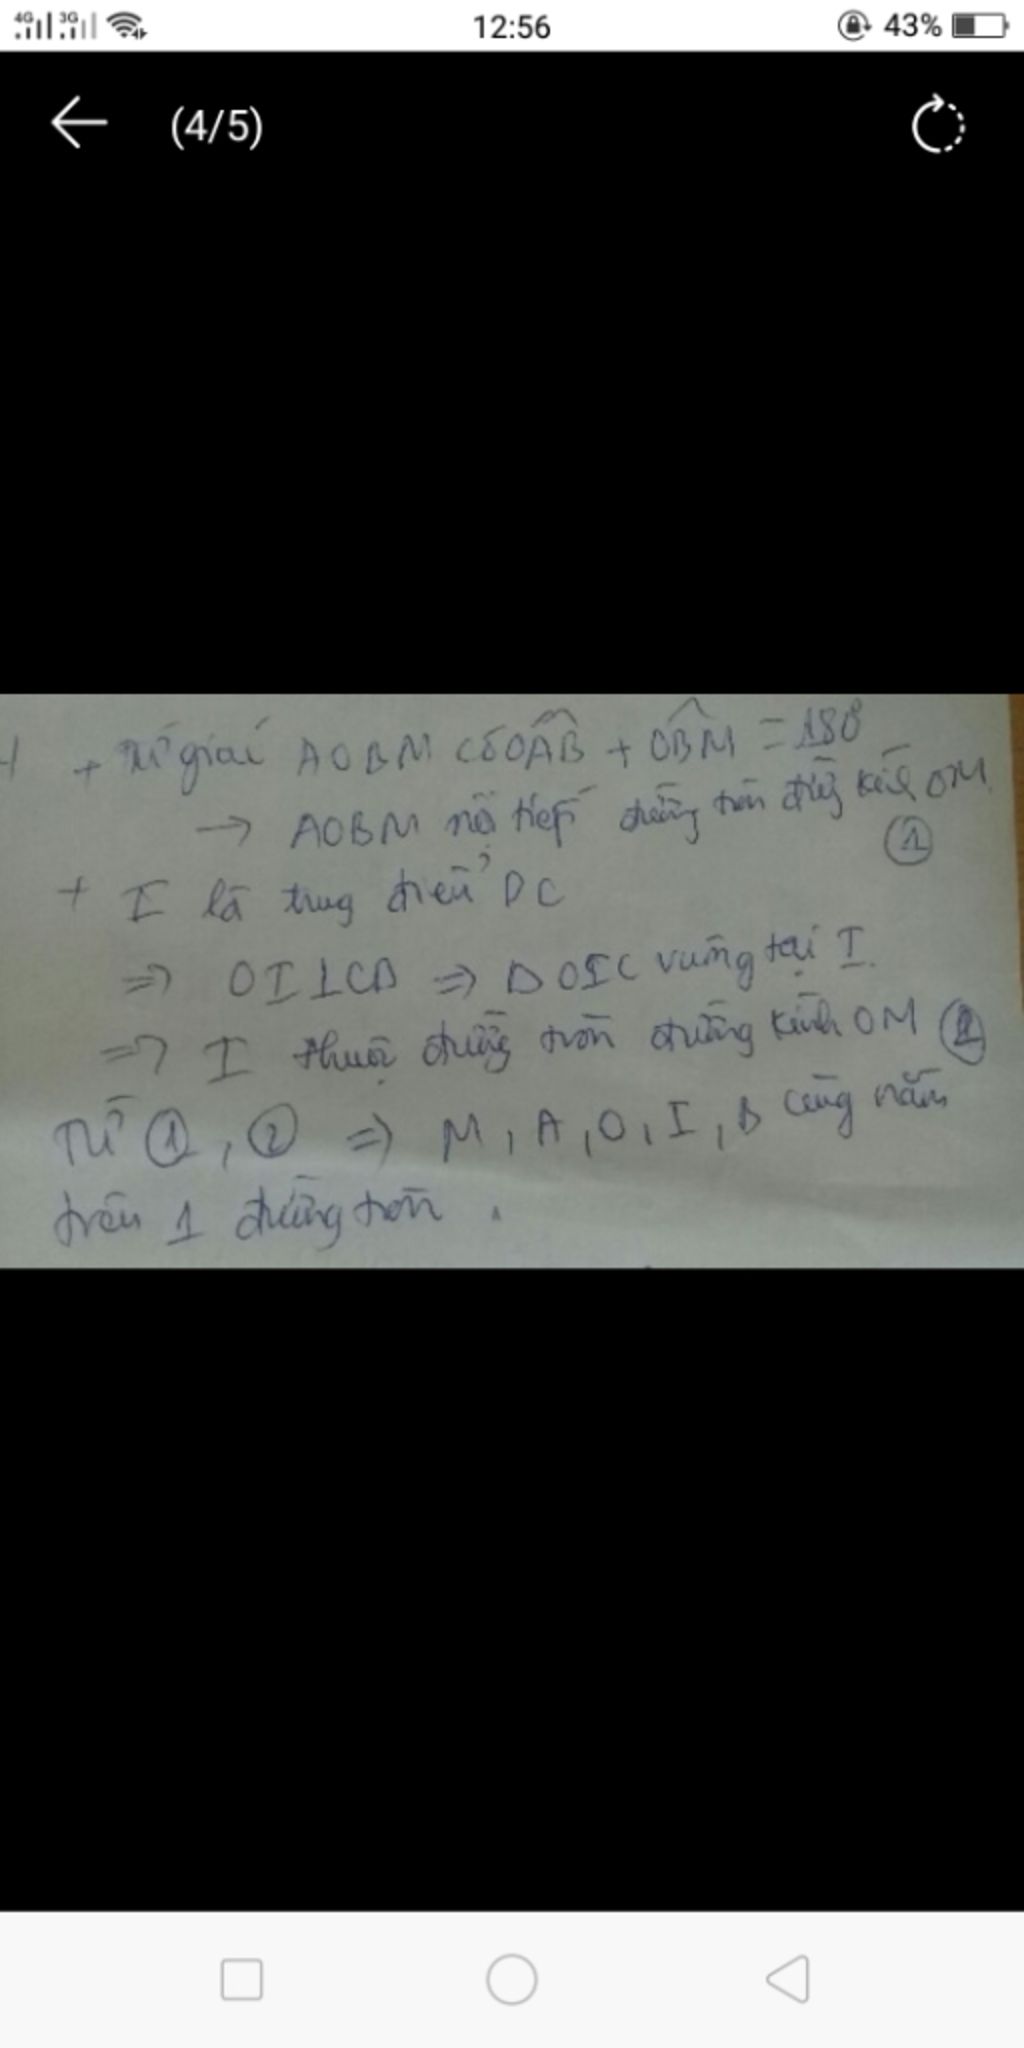 4G 3G 12:56 43%
(4/5)
+ Tứ giác AOBM có OAB + OBM = 180°
→ AOBM nội tiếp đường tròn đường kính OM ①
+ I là trung điểm DC
=> OI⊥CD => ΔOIC vuông tại I.
=> I thuộc đường tròn đường kính OM ②
Từ ①, ② => M, A, O, I, B cùng nằm
trên 1 đường tròn.